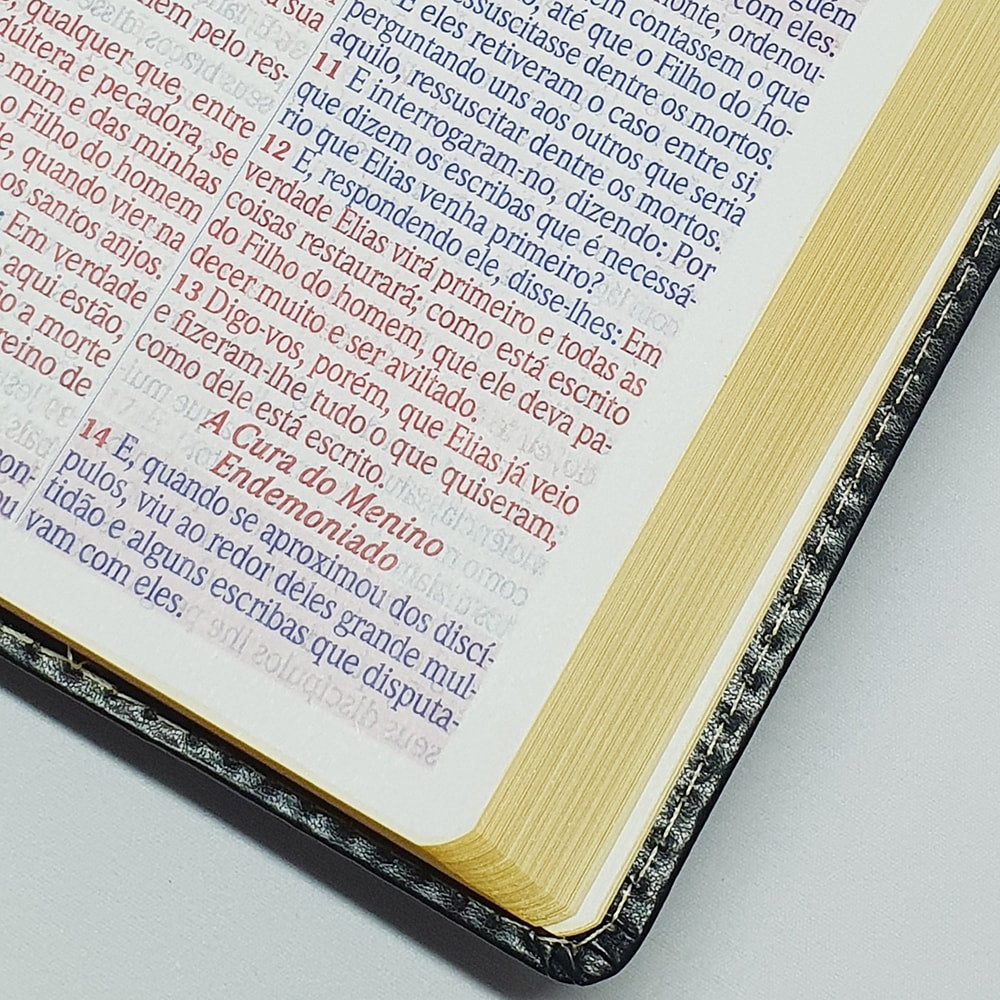 sua
nem pelo res-
qualquer que, entre
adúltera e pecadora, se
e mim e das minhas
o Filho do homem
quando vier na
os santos anjos.
Em verdade
aqui estão,
a morte
reino de
com eles.
monte, ordenou-
contassem o que
até que o Filho do ho-
ressuscitasse dentre os mortos.
E eles retiveram o caso entre si,
perguntando uns aos outros que seria
aquilo, ressuscitar dentre os mortos.
11 E interrogaram-no, dizendo: Por
que dizem os escribas que é necessá-
rio que Elias venha primeiro?
12 E, respondendo ele, disse-lhes: Em
verdade Elias virá primeiro e todas as
coisas restaurará; como está escrito
do Filho do homem, que ele deva pa-
decer muito e ser aviltado.
13 Digo-vos, porém, que Elias já veio
e fizeram-lhe tudo o que quiseram,
como dele está escrito.
A Cura do Menino
Endemoniado
14 E, quando se aproximou dos discí-
pulos, viu ao redor deles grande mul-
tidão e alguns escribas que disputa-
vam com eles.